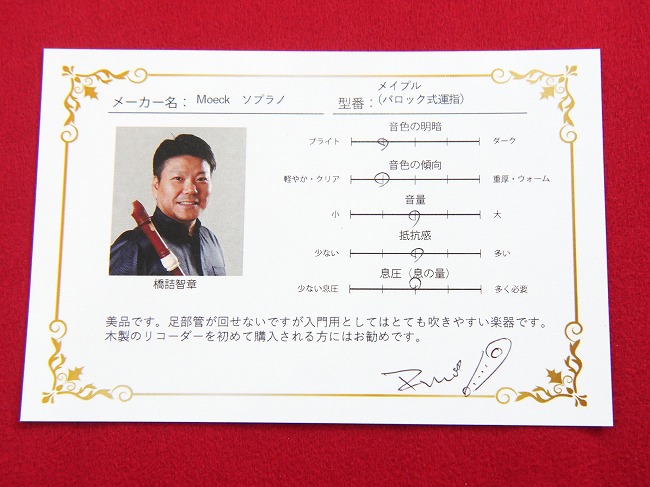 メーカー名： Moeck ソプラノ
型番： メイプル
(バロック式運指)
音色の明暗
ブライト ダーク
音色の傾向
軽やか・クリア 重厚・ウォーム
音量
小 大
抵抗感
少ない 多い
息圧（息の量）
少ない息圧 多く必要
橋詰智章
美品です。足部管が回せないですが入門用としてはとても吹きやすい楽器です。
木製のリコーダーを初めて購入される方にはお勧めです。